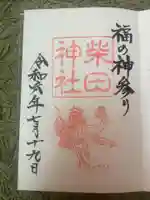 福の神参り
柴田
神社
令和六年七月十九日